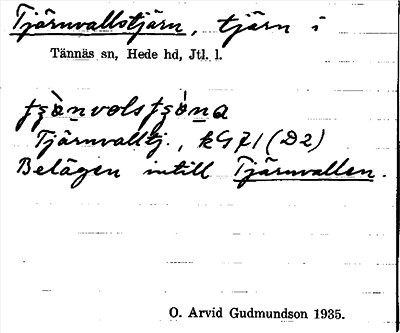 Tjärnvallstjärn, tjärn i
Tännäs sn, Hede hd, Jtl. l.
Tjärnvalltj., kG71 (D2)
Belägen intill Tjärnvallen.
O. Arvid Gudmundson 1935.